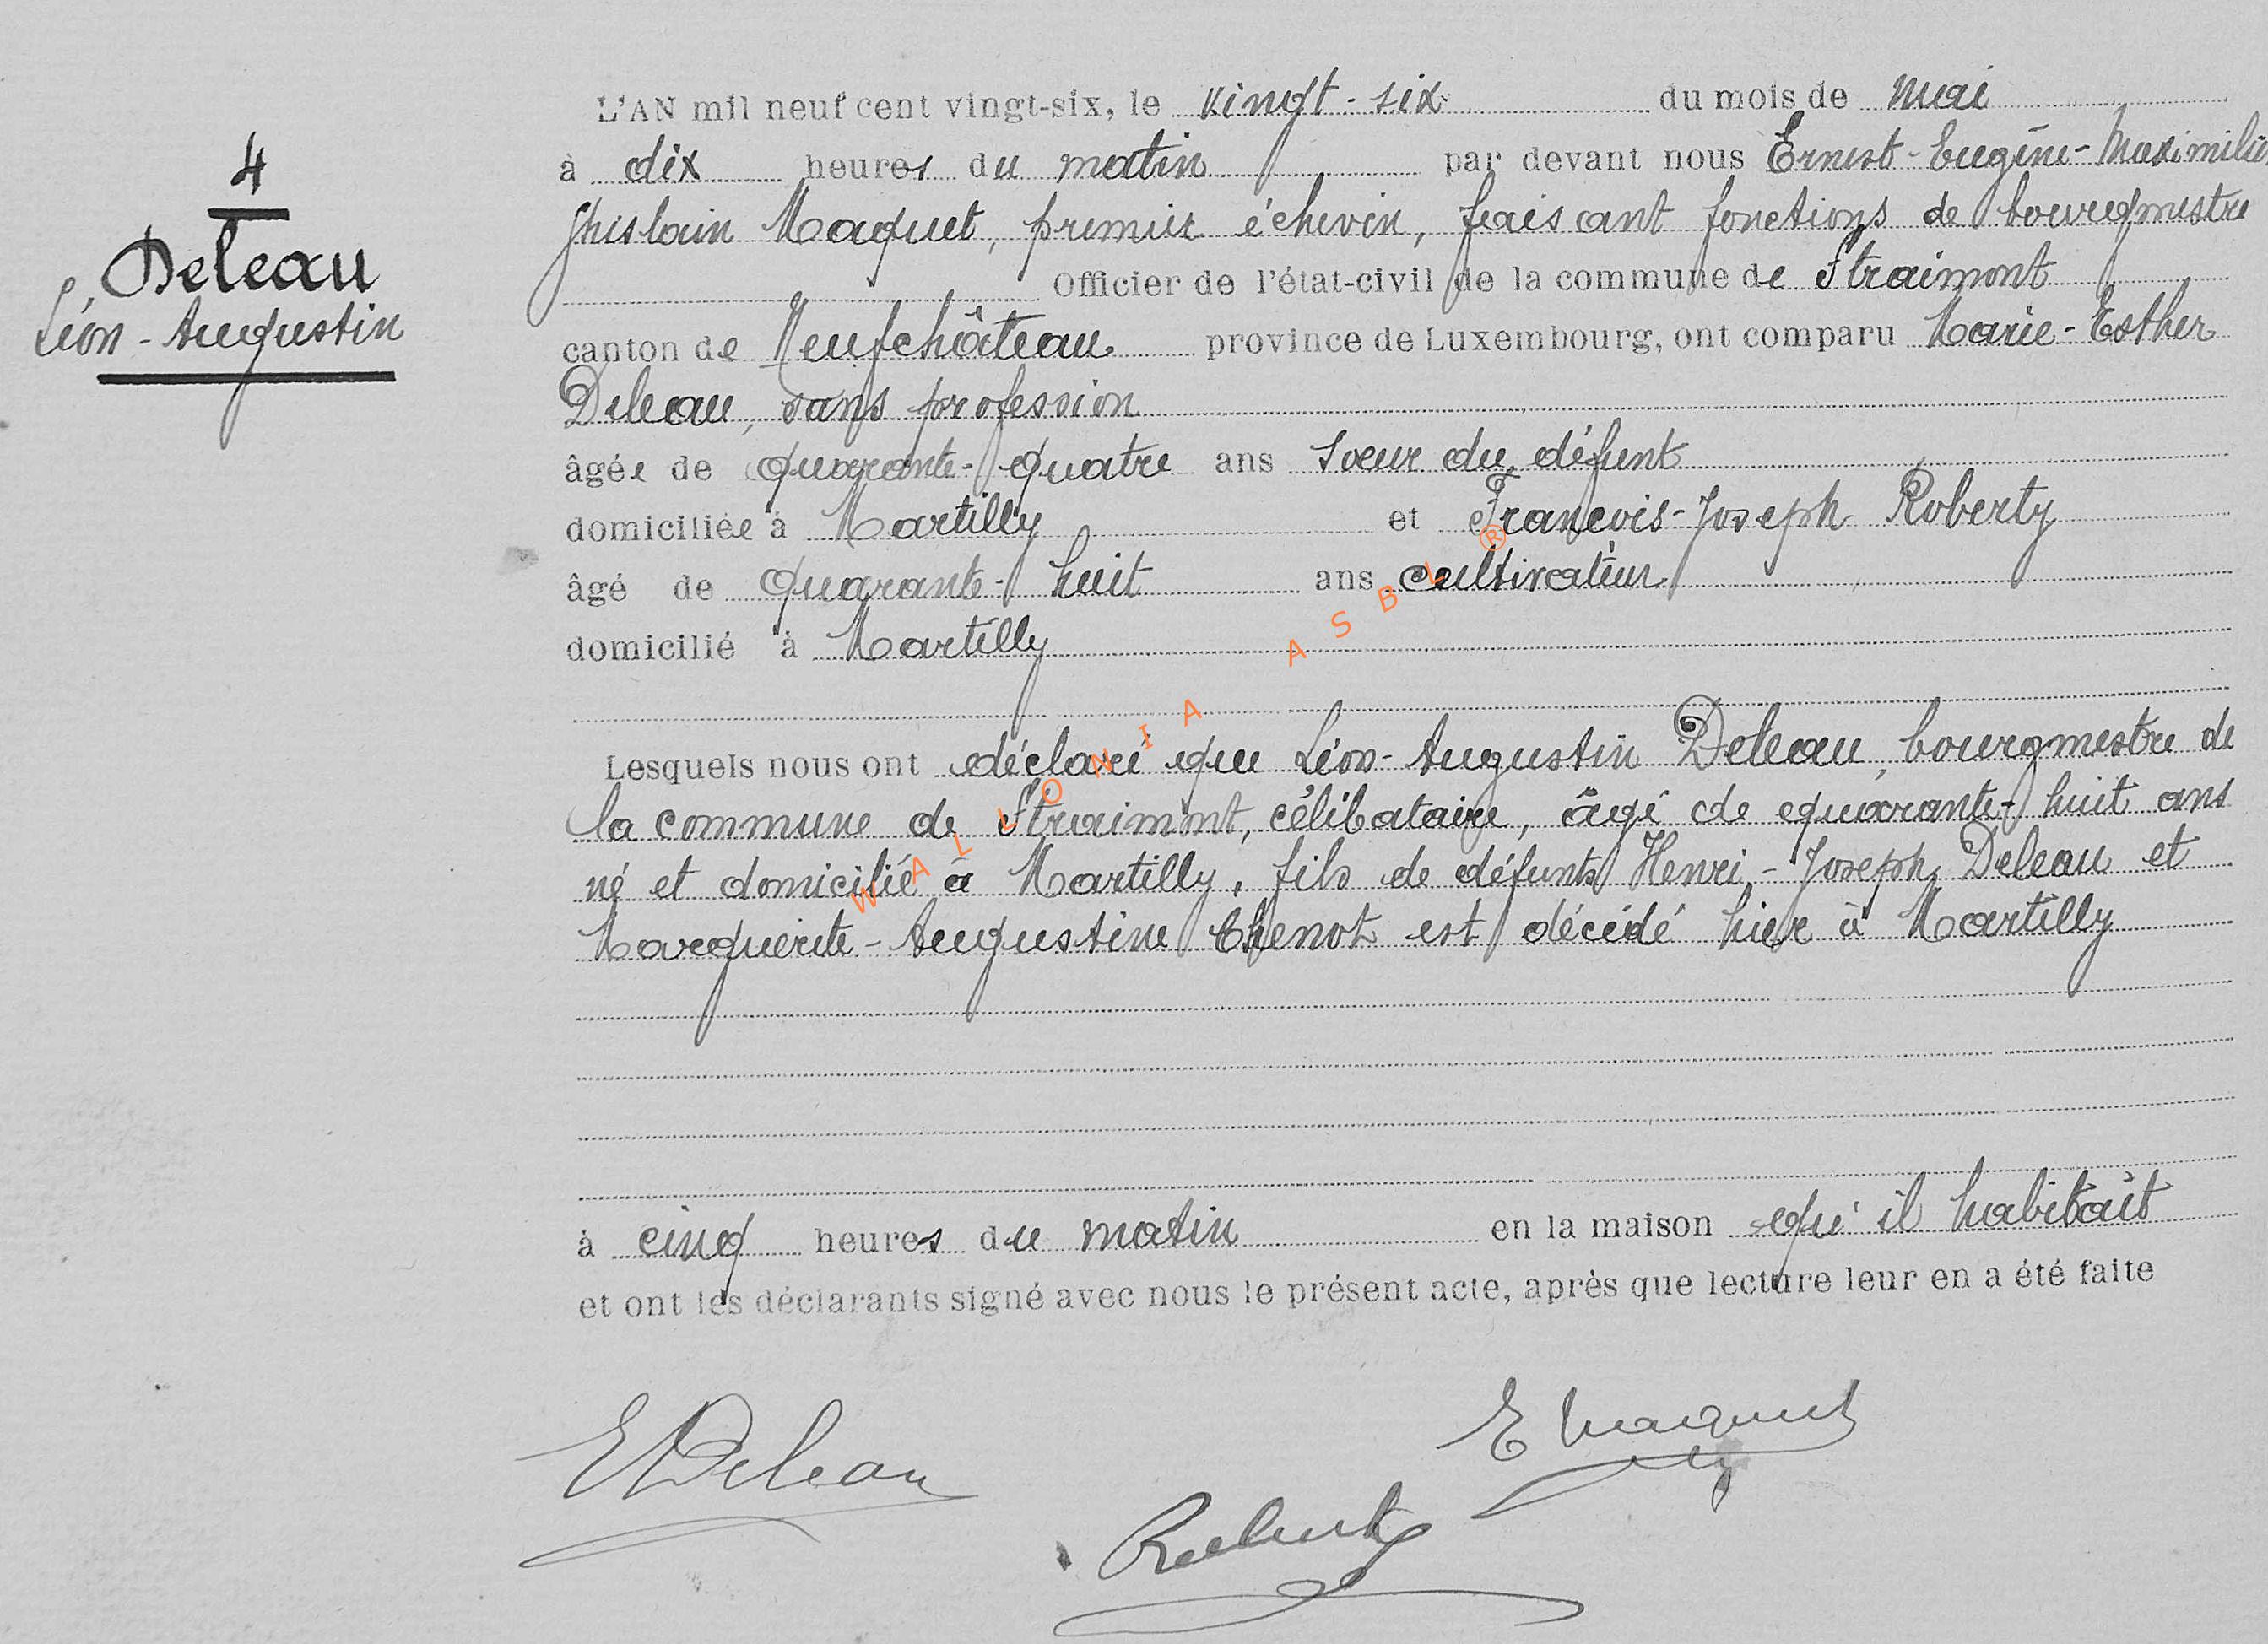 4
Deleau
Léon-Augustin
L'AN mil neuf cent vingt-six, le vingt-six du mois de mai
à dix heures du matin par devant nous Ernest-Eugène-Maximilien
Ghislain Maquet, premier échevin, faisant fonctions de bourgmestre
Officier de l'état-civil de la commune de Straimont
canton de Neufchâteau province de Luxembourg, ont comparu Marie-Esther
Deleau, sans profession
âgée de quarante-quatre ans soeur du défunt
domiciliée à Martilly et François-Joseph Roberty
âgé de quarante-huit ans cultivateur
domicilié à Martilly
Lesquels nous ont déclaré que Léon-Augustin Deleau, bourgmestre de
la commune de Straimont, célibataire, âgé de quarante-huit ans
né et domicilié à Martilly, fils de défunts Henri-Joseph Deleau et
Marguerite-Augustine Chenot est décédé hier à Martilly
à cinq heures du matin en la maison qu'il habitait
et ont les déclarants signé avec nous le présent acte, après que lecture leur en a été faite
E Deleau
E Maquet
Roberty
WALLONIA ASBL ®